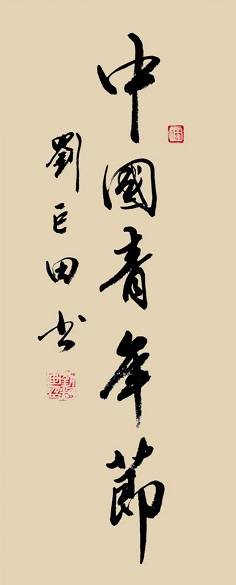 中國青年節
劉巨田书